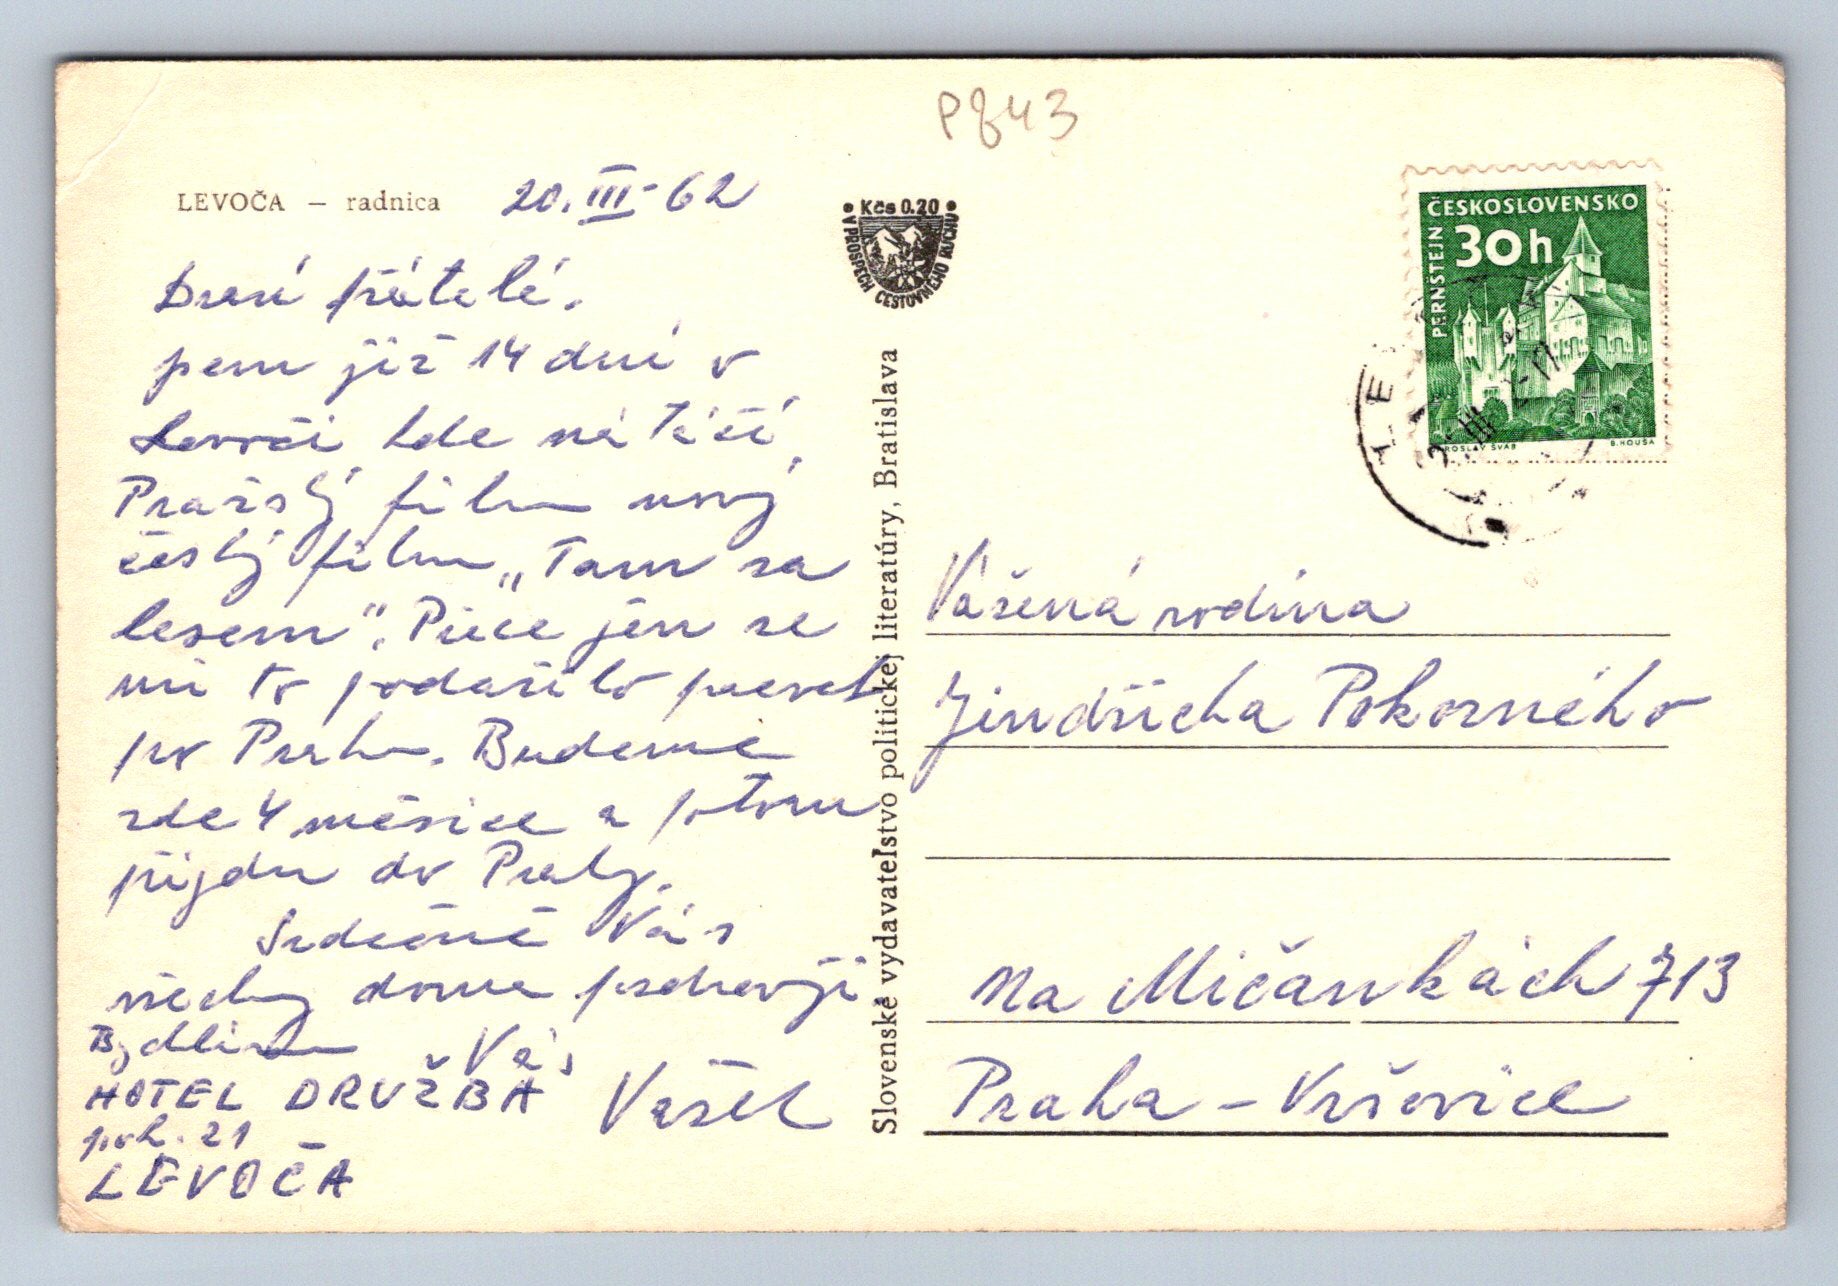 P843
LEVOČA – radnica 20. III - 62
• Kčs 0.20 •
V PROSPECH CESTOVNÉHO RUCHU
ČESKOSLOVENSKO
30h
PERNŠTEJN
JAROSLAV ŠVÁB
B. HOUSA
Drazí přátelé,
jsem již 14 dní v
Levoči kde natáčí
Pražský film nový
český film „Tam za
lesem". Přece jen se
mi to podařilo
po Praha. Budeme
zde 4 měsíce a potom
přijedu do Prahy.
Srdečně Vás
všechny doma pozdravuji
Bydlím Váš
HOTEL DRUŽBA Vašek
pok. 21
LEVOČA
Slovenské vydavateľstvo politickej literatúry, Bratislava
Vážená rodina
Jindřicha Pokorného
Na Mičánkách 713
Praha – Vršovice